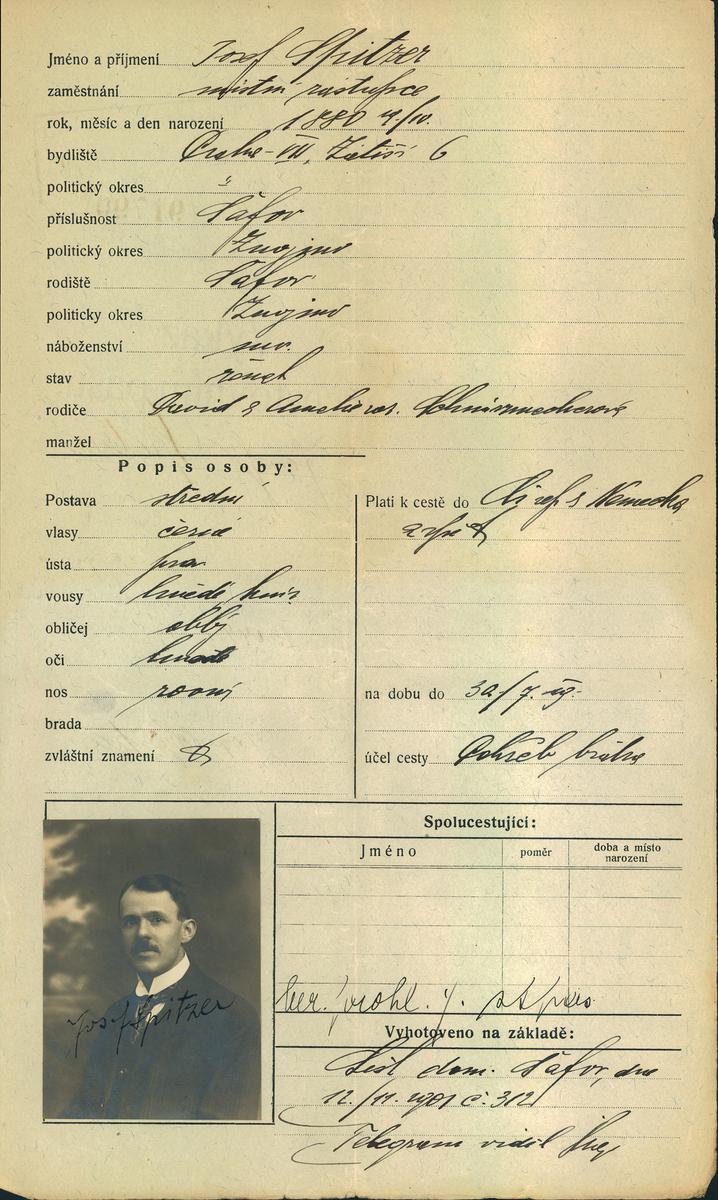 Jméno a příjmení Josef Spitzer
zaměstnání místní zástupce
rok, měsíc a den narození 1880 /IV.
bydliště Praha-VII, Zátiší 6
politický okres "
příslušnost Šafov
politický okres Znojmo
rodiště Šafov
politicky okres Znojmo
náboženství
stav ženat
rodiče David & Amalie roz.
manžel
Popis osoby:
Postava střední
vlasy černé
ústa
vousy hnědé
obličej oblý
oči hnědé
nos rovný
brada
zvláštní znamení
Platí k cestě do Německa
a zpět
na dobu do 30/7.
účel cesty Pohřeb bratra
Spolucestující:
Jméno poměr doba a místo narození
Vyhotoveno na základě:
List dom. Šafov, dne
12./11. 1901 č. 312
Telegram viděl
Josef Spitzer